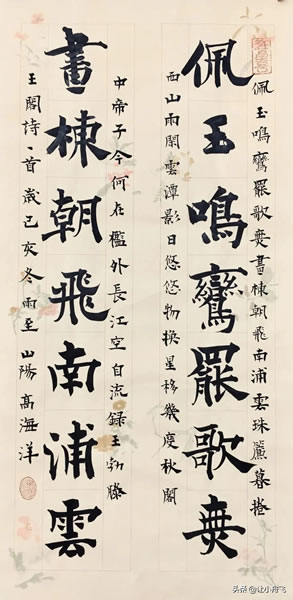 佩玉鳴鸞罷歌舞畫棟朝飛南浦雲珠簾暮捲
佩玉鳴鸞罷歌舞
西山雨閑雲潭影日悠悠物換星移幾度秋閣
中帝子今何在檻外長江空自流錄王勃滕
畫棟朝飛南浦雲
王閣詩一首歲己亥冬雨至山陽高海洋
头条@让小舟飞